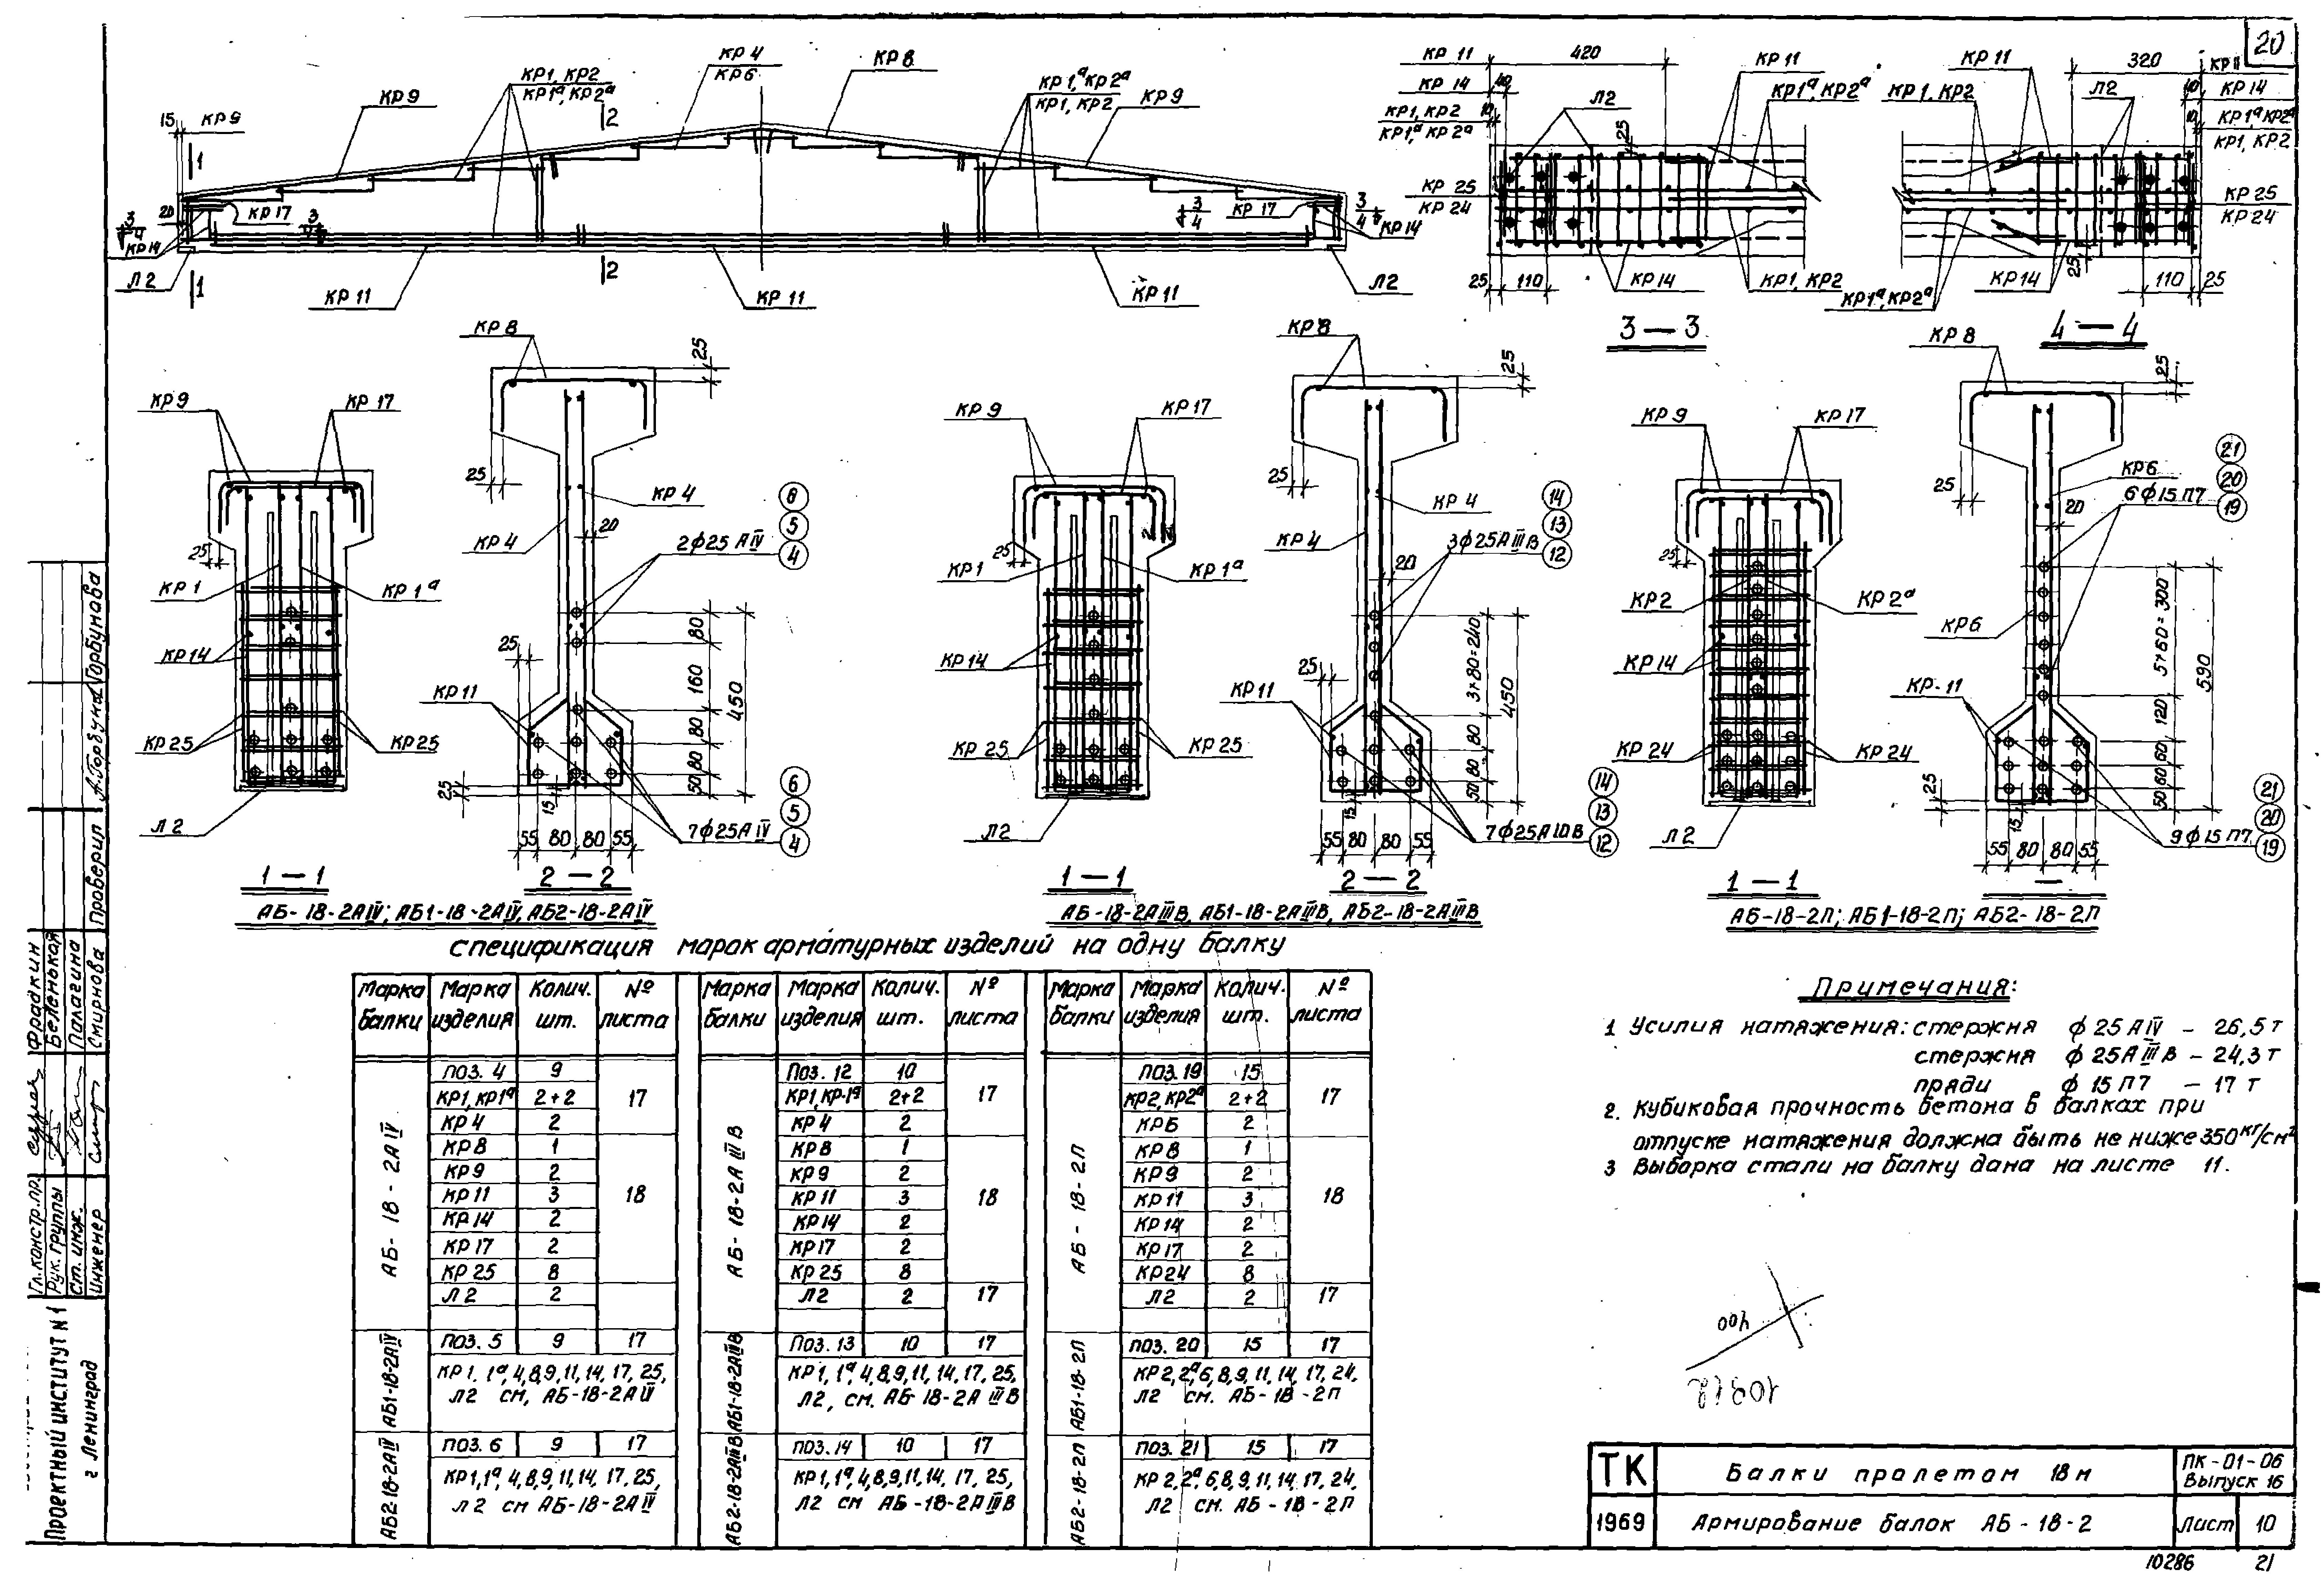 20
КР 4
КР6
КР 8
КР1, КР2
КР1ᵃ, КР2ᵃ
КР 1ᵃ КР2ᵃ
КР1, КР2
КР9
КР9
15
КР 9
1
2
20
КР 17
КР 17
3
4
3
4
3
4
КР14
КР14
Л 2
1
2
КР 11
КР 11
КР 11
Л2
КР 11
420
КР 11
КР 14
40
Л2
КР1ᵃ, КР2ᵃ
КР1, КР2
10
КР1ᵃ КР 2ᵃ
25
КР 25
КР 24
25
110
КР14
КР1, КР2
3 — 3
КР 11
320
КР 1, КР2
Л2
40
КР 14
10
КР 1ᵃ КР2ᵃ
КР1, КР2
КР 25
КР 24
КР1ᵃ, КР2ᵃ
КР14
25
110
25
4 — 4
КР9
КР 17
25
КР 1
КР 1ᵃ
КР14
КР25
КР25
Л 2
1 — 1
КР 8
25
25
КР 4
КР 4
20
2ф25 АIV
5
4
25
КР 11
80
160
80
80
50
450
25
15
55
80
80
55
7ф25А IV
6
5
4
2 — 2
АБ-18-2АIV; АБ1-18-2АIV, АБ2-18-2АIV
КР 9
КР 17
25
КР1
КР 1ᵃ
КР14
КР25
КР 25
Л2
1 — 1
КР8
25
25
КР 4
КР 4
20
3ф25АIIIВ
14
13
12
25
КР11
3×80=240
80
80
50
450
15
55
80
80
55
7ф25АIIIВ
14
13
12
2 — 2
АБ-18-2АIIIВ, АБ1-18-2АIIIВ, АБ2-18-2АIIIВ
КР 9
КР 17
25
КР2
КР 2ᵃ
КР14
КР 24
КР 24
Л 2
1 — 1
КР 8
25
25
КР6
6ф15 П7
21
20
19
20
КР6
КР-11
5×60=300
120
60
60
50
590
25
15
55
80
80
55
9ф15 П7
21
20
19
АБ-18-2П; АБ1-18-2П; АБ2-18-2П
Спецификация марок арматурных изделий на одну балку
Марка балки Марка изделия Колич. шт. № листа
АБ-18-2АIV
поз. 4 9
КР1, КР1ᵃ 2+2 17
КР 4 2
КР 8 1
КР 9 2
КР 11 3 18
КР 14 2
КР 17 2
КР 25 8
Л 2 2
АБ1-18-2АIV
поз. 5 9 17
КР1, 1ᵃ, 4,8,9,11,14, 17, 25,
АБ2-18-2АIV
поз. 6 9 17
КР1,1ᵃ, 4,8,9,11,14, 17,25,
Л 2 см АБ-18-2АIV
Марка балки Марка изделия Колич. шт. № листа
АБ-18-2АIIIВ
Поз. 12 10
КР1, КР-1ᵃ 2+2 17
КР 4 2
КР8 1
КР9 2
КР 11 3 18
КР14 2
КР17 2
КР25 8
Л2 2 17
АБ1-18-2АIIIВ
Поз. 13 10 17
КР1, 1ᵃ, 4,8,9,11, 14, 17, 25,
Л2, см. АБ-18-2АIIIВ
АБ2-18-2АIIIВ
поз. 14 10 17
КР1,1ᵃ,4,8,9,11,14, 17, 25,
Л2 см АБ-18-2АIIIВ
Марка балки Марка изделия Колич. шт. № листа
АБ-18-2П
поз. 19 15
КР2, КР2ᵃ 2+2 17
КР6 2
КР8 1
КР9 2
КР11 3 18
КР14 2
КР 17 2
КР24 8
Л2 2 17
АБ1-18-2П
поз. 20 15 17
КР2,2ᵃ,6,8,9,11,14,17,24,
Л2 см. АБ-18-2П
АБ2-18-2П
поз. 21 15 17
КР 2,2ᵃ,6,8,9,11,14,17,24,
Л2 см. АБ-18-2П
Примечания:
1 Усилия натяжения: стержня ф 25 АIV – 26,5т
стержня ф 25АIIIВ – 24,3т
пряди ф 15П7 – 17 т
2. Кубиковая прочность бетона в балках при
отпуске натяжения должна быть не ниже 350кг/см²
3 Выборка стали на балку дана на листе 11.
400
ТК
Балки пролетом 18м
ПК-01-06
Выпуск 16
1969
Армирование балок АБ-18-2
Лист
10
10286
21
Проектный институт №1
г Ленинград
Гл. констр. пр.
Фрадкин
Рук. группы
Беленькая
Ст. инж.
Палагина
Инженер
Смирнова
Проверил
Горбунова